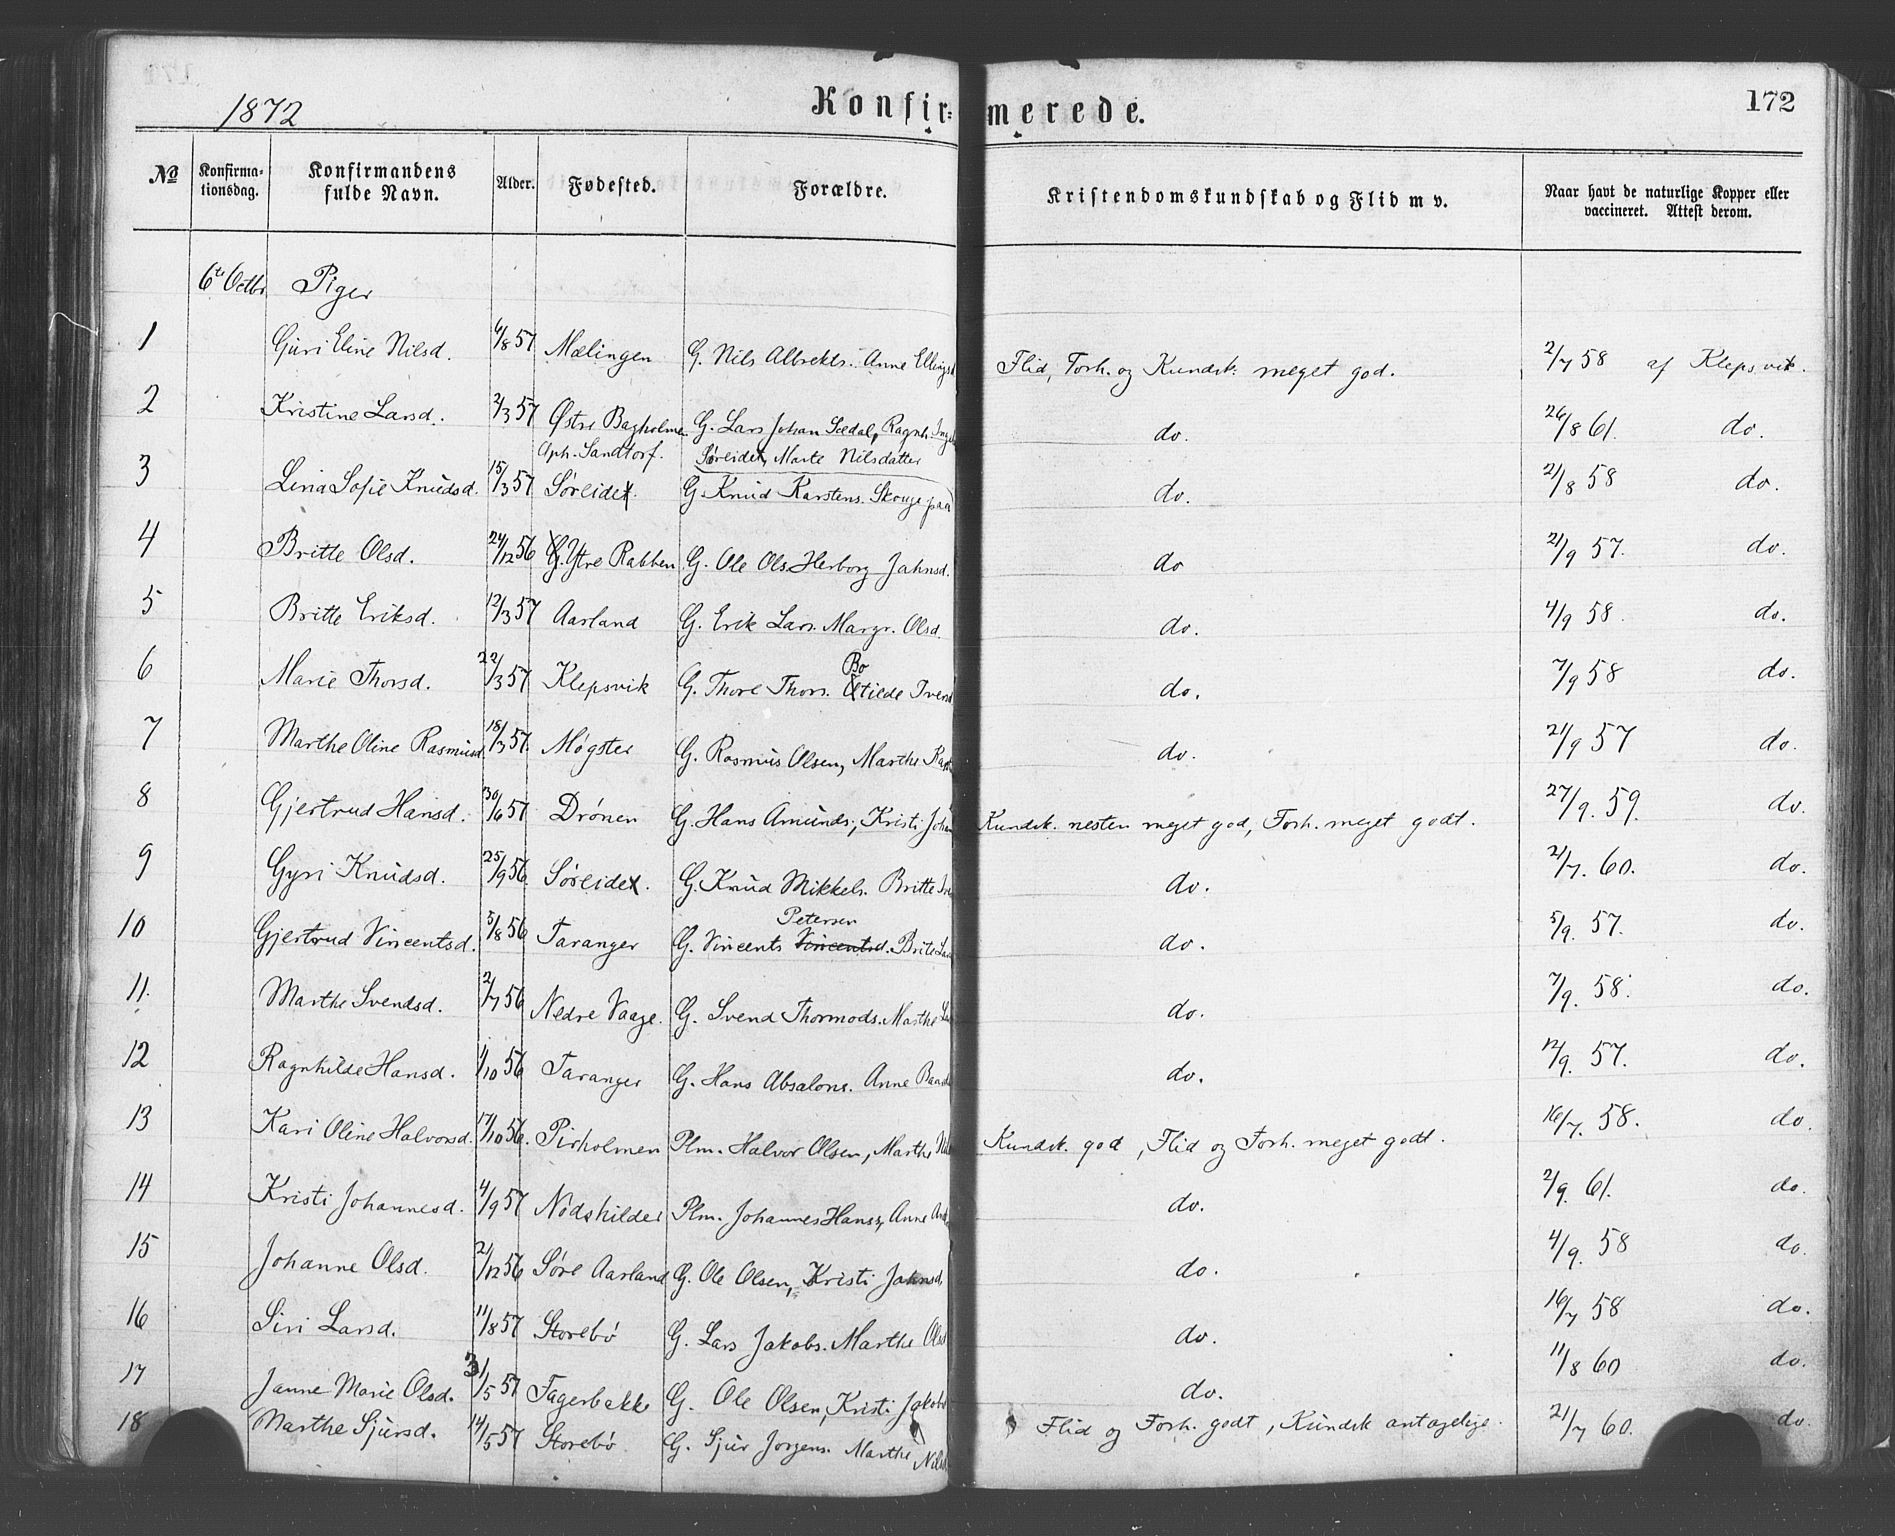 1872 Konfir= merede. 172
№ Konfirma-tionsdag. Konfirmandens fulde Navn. Alder. Fødested. Forældre. Kristendomskundskab og Flid m v. Naar havt de naturlige Kopper eller vaccineret. Attest derom.
6te Octbr Piger
1 Guri Eline Nilsd. 6/8 57 Mælingen G. Nils Albrekts. Anne Ellingsd Flid, Forh. og Kundsk. meget god. 2/7 58 af Klepsvik.
2 Kristine Larsd. 2/3 57 Østre Bagholmen G. Lars Johan Sædal, Ragnh. do. 26/8 61. do.
Oph. Sandtorf. Søreidet, Marte Nilsdatter
3 Lina Sofie Knudsd. 15/3 57 Søreidet. G. Knud Karstens. Skouge paa do. 21/8 58 do.
4 Britte Olsd. 24/12 56 Ytre Rabben G. Ole Ols. Herborg Jahnsd. do 21/9 57. do.
5 Britte Eriksd. 12/3 57 Aarland G. Erik Lars. Margr. Olsd. do. 4/9 58. do.
Bo
6 Marie Thorsd. 22/3 57 Klepsvik G. Thore Thors. tilde Iversd do. 7/9 58 do.
7 Marthe Oline Rasmusd 18/3 57. Møgster G. Rasmus Olsen, Marthe do. 21/9 57 do.
8 Gjertrud Hansd. 30/6 57 Drønen G. Hans Amunds., Kristi Johan Kundsk. nesten meget god, Forh. meget godt. 27/9. 59. do.
9 Gyri Knudsd. 25/9 56. Søreidet. G. Knud Mikkels. Britte do. 21/7. 60. do.
Petersen
10 Gjertrud Vincentsd. 5/8 56 Taranger G. Vincents Vincentsd. Brite do. 5/9. 57. do.
11. Marthe Svendsd. 2/7 56 Nedre Vaage. G. Svend Thormods. Marthe do. 7/9. 58. do.
12 Ragnhilde Hansd. 1/10 56 Taranger G. Hans Absalons. Anne do. 12/9. 57. do.
13 Kari Oline Halvorsd. 17/10 56. Pirholmen Plm. Halvor Olsen, Marthe Kundsk. god, Flid og Forh. meget godt. 16/7. 58. do.
14 Kristi Johannesd. 4/9 57 Nødskilder Plm. Johannes Hans., Anne do. 2/9. 61. do.
15 Johanne Olsd. 21/12 56 Søre Aarland G. Ole Olsen, Kristi Jahnsd. do. 4/9. 58 do.
16 Siri Larsd. 11/8 57 Storebø G. Lars Jakobs. Marthe Olsd do. 16/7 58 do.
17 Janne Marie Olsd. 31/5 57 Fagerbakke G. Ole Olsen, Kristi Jakobs do. 11/8 60 do.
18 Marthe Sjursd. 14/5 57 Storebø G. Sjur Jorgens. Marthe Nilsd Flid og Forh. godt, Kundsk antagelige. 21/7 60. do